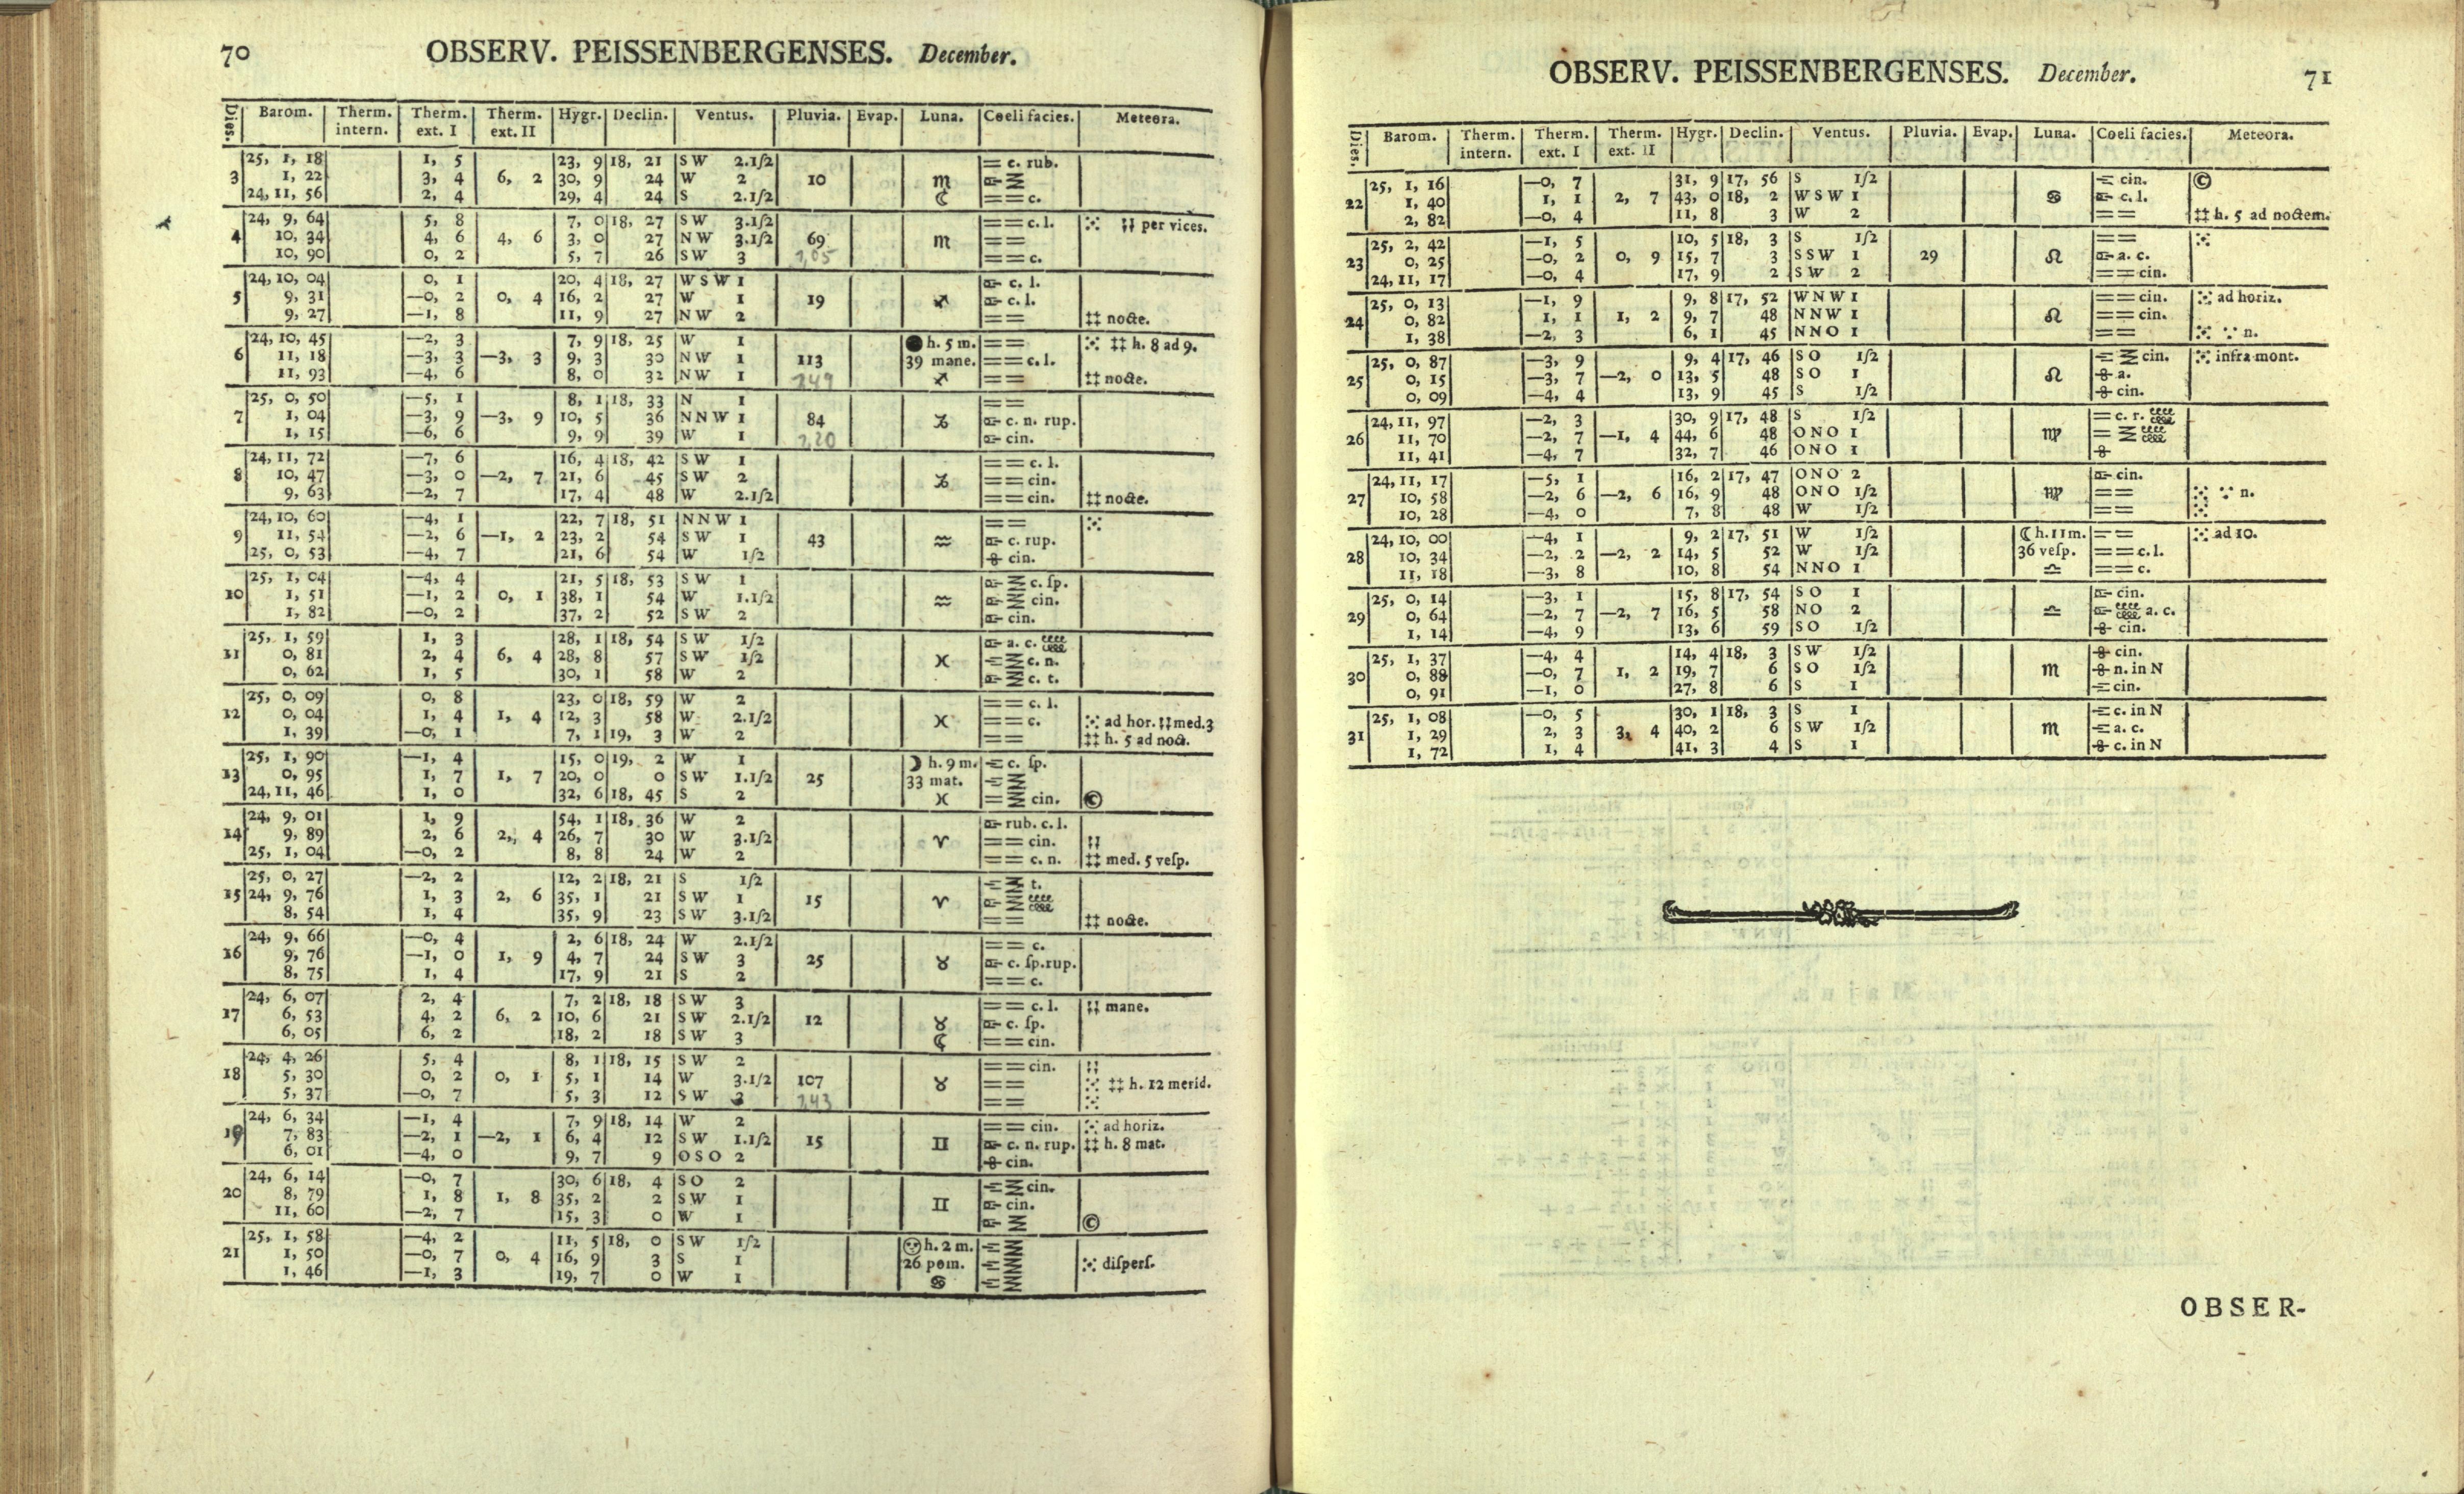 70 OBSERV. PEISSENBERGENSES. December.
Dies. Barom. Therm. intern. Therm. ext. I Therm. ext. II Hygr. Declin. Ventus. Pluvia. Evap. Luna. Cœli facies. Meteora.
25, 1, 18 1, 5 23, 9 18, 21 SW 2.1/2 == c. rub.
3 1, 22 3, 4 6, 2 30, 9 24 W 2 10 ♏
24, 11, 56 2, 4 29, 4 24 S 2.1/2 ☾ == c.
24, 9, 64 5, 8 7, 0 18, 27 SW 3.1/2 == c. l. per vices.
4 10, 34 4, 6 4, 6 3, 0 27 NW 3.1/2 69 ♏ ==
10, 90 0, 2 5, 7 26 SW 3 == c.
24, 10, 04 0, 1 20, 4 18, 27 WSW 1 c. l.
5 9, 31 —0, 2 0, 4 16, 2 27 W 1 19 ♐ c. l.
9, 27 —1, 8 11, 9 27 NW 2 == ‡‡ nocte.
24, 10, 45 —2, 3 7, 9 18, 25 W 1 ● h. 5 m. == ‡‡ h. 8 ad 9.
6 11, 18 —3, 3 —3, 3 9, 3 30 NW 1 113 39 mane. == c. l.
11, 93 —4, 6 8, 0 32 NW 1 ♐ == ‡‡ nocte.
25, 0, 50 —5, 1 8, 1 18, 33 N 1 ==
7 1, 04 —3, 9 —3, 9 10, 5 36 NNW 1 84 ♑ c. n. rup.
1, 15 —6, 6 9, 9 39 W 1 cin.
24, 11, 72 —7, 6 16, 4 18, 42 SW 1 == c. l.
8 10, 47 —3, 0 —2, 7 21, 6 45 SW 2 ♑ == cin.
9, 63 —2, 7 17, 4 48 W 2.1/2 == cin. ‡‡ nocte.
24, 10, 60 —4, 1 22, 7 18, 51 NNW 1 ==
9 11, 54 —2, 6 —1, 2 23, 2 54 SW 1 43 ♒ c. rup.
25, 0, 53 —4, 7 21, 6 54 W 1/2 cin.
25, 1, 04 —4, 4 21, 5 18, 53 SW 1 c. ſp.
10 1, 51 —1, 2 0, 1 38, 1 54 W 1.1/2 ♒ cin.
1, 82 —0, 2 37, 2 52 SW 2 cin.
25, 1, 59 1, 3 28, 1 18, 54 SW 1/2 a. c.
11 0, 81 2, 4 6, 4 28, 8 57 SW 1/2 ♓ c. n.
0, 62 1, 5 30, 1 58 W 2 c. t.
25, 0, 09 0, 8 23, 0 18, 59 W 2 == c. l.
12 0, 04 1, 4 1, 4 12, 3 58 W 2.1/2 ♓ == c. ad hor. med. 3
1, 39 —0, 1 7, 1 19, 3 W 2 == ‡‡ h. 5 ad noct.
25, 1, 90 —1, 4 15, 0 19, 2 W 1 ☽ h. 9 m. c. ſp.
13 0, 95 1, 7 1, 7 20, 0 0 SW 1.1/2 25 33 mat.
24, 11, 46 1, 0 32, 6 18, 45 S 2 ♓ cin. ©
24, 9, 01 1, 9 54, 1 18, 36 W 2 rub. c. l.
14 9, 89 2, 6 2, 4 26, 7 30 W 3.1/2 ♈ == cin.
25, 1, 04 —0, 2 8, 8 24 W 2 == c. n. ‡‡ med. 5 veſp.
25, 0, 27 —2, 2 12, 2 18, 21 S 1/2 t.
15 24, 9, 76 1, 3 2, 6 35, 1 21 SW 1 15 ♈
8, 54 1, 4 35, 9 23 SW 3.1/2 == ‡‡ nocte.
24, 9, 66 —0, 4 2, 6 18, 24 W 2.1/2 == c.
16 9, 76 —1, 0 1, 9 4, 7 24 SW 3 25 ♉ c. ſp. rup.
8, 75 1, 4 17, 9 21 S 2 == c.
24, 6, 07 2, 4 7, 2 18, 18 SW 3 == c. l. mane.
17 6, 53 4, 2 6, 2 10, 6 21 SW 2.1/2 12 ♉ c. ſp.
6, 05 6, 2 18, 2 18 SW 3 ☾ == cin.
24, 4, 26 5, 4 8, 1 18, 15 SW 2 == cin.
18 5, 30 0, 2 0, 1 5, 1 14 W 3.1/2 107 ♉ == ‡‡ h. 12 merid.
5, 37 —0, 7 5, 3 12 SW 3 ==
24, 6, 34 —1, 4 7, 9 18, 14 W 2 == cin. ad horiz.
19 7, 83 —2, 1 —2, 1 6, 4 12 SW 1.1/2 15 ♊ c. n. rup. ‡‡ h. 8 mat.
6, 01 —4, 0 9, 7 9 OSO 2 cin.
24, 6, 14 —0, 7 30, 6 18, 4 SO 2 cin.
20 8, 79 1, 8 1, 8 35, 2 2 SW 1 ♊ cin.
11, 60 —2, 7 15, 3 0 W 1 ©
25, 1, 58 —4, 2 11, 5 18, 0 SW 1/2 h. 2 m.
21 1, 50 —0, 7 0, 4 16, 9 3 S 1 26 pom. diſperſ.
1, 46 —1, 3 19, 7 0 W 1 ♋
OBSERV. PEISSENBERGENSES. December. 71
Dies. Barom. Therm. intern. Therm. ext. I Therm. ext. II Hygr. Declin. Ventus. Pluvia. Evap. Luna. Cœli facies. Meteora.
25, 1, 16 —0, 7 31, 9 17, 56 S 1/2 cin. ©
22 1, 40 1, 1 2, 7 43, 0 18, 2 WSW 1 ♋ c. l.
2, 82 —0, 4 11, 8 3 W 2 == ‡‡ h. 5 ad noctem.
25, 2, 42 —1, 5 10, 5 18, 3 S 1/2 ==
23 0, 25 —0, 2 0, 9 15, 7 3 SSW 1 29 ♌ a. c.
24, 11, 17 —0, 4 17, 9 2 SW 2 == cin.
25, 0, 13 —1, 9 9, 8 17, 52 WNW 1 == cin. ad horiz.
24 0, 82 1, 1 1, 2 9, 7 48 NNW 1 ♌ == cin.
1, 38 —2, 3 6, 1 45 NNO 1 == n.
25, 0, 87 —3, 9 9, 4 17, 46 SO 1/2 cin. infra mont.
25 0, 15 —3, 7 —2, 0 13, 5 48 SO 1 ♌ a.
0, 09 —4, 4 13, 9 45 S 1/2 cin.
24, 11, 97 —2, 3 30, 9 17, 48 S 1/2 = c. r.
26 11, 70 —2, 7 —1, 4 44, 6 48 ONO 1 ♍
11, 41 —4, 7 32, 7 46 ONO 1
24, 11, 17 —5, 1 16, 2 17, 47 ONO 2 cin.
27 10, 58 —2, 6 —2, 6 16, 9 48 ONO 1/2 ♍ == n.
10, 28 —4, 0 7, 8 48 W 1/2 ==
24, 10, 00 —4, 1 9, 2 17, 51 W 1/2 ☾ h. 11 m. == ad 10.
28 10, 34 —2, 2 —2, 2 14, 5 52 W 1/2 36 veſp. == c. l.
11, 18 —3, 8 10, 8 54 NNO 1 ♎ == c.
25, 0, 14 —3, 1 15, 8 17, 54 SO 1 cin.
29 0, 64 —2, 7 —2, 7 16, 5 58 NO 2 ♎ a. c.
1, 14 —4, 9 13, 6 59 SO 1/2 cin.
25, 1, 37 —4, 4 14, 4 18, 3 SW 1/2 cin.
30 0, 88 —0, 7 1, 2 19, 7 6 SO 1/2 ♏ n. in N
0, 91 —1, 0 27, 8 6 S 1 cin.
25, 1, 08 —0, 5 30, 1 18, 3 S 1 c. in N
31 1, 29 2, 3 3, 4 40, 2 6 SW 1/2 ♏ a. c.
1, 72 1, 4 41, 3 4 S 1 c. in N
OBSER-